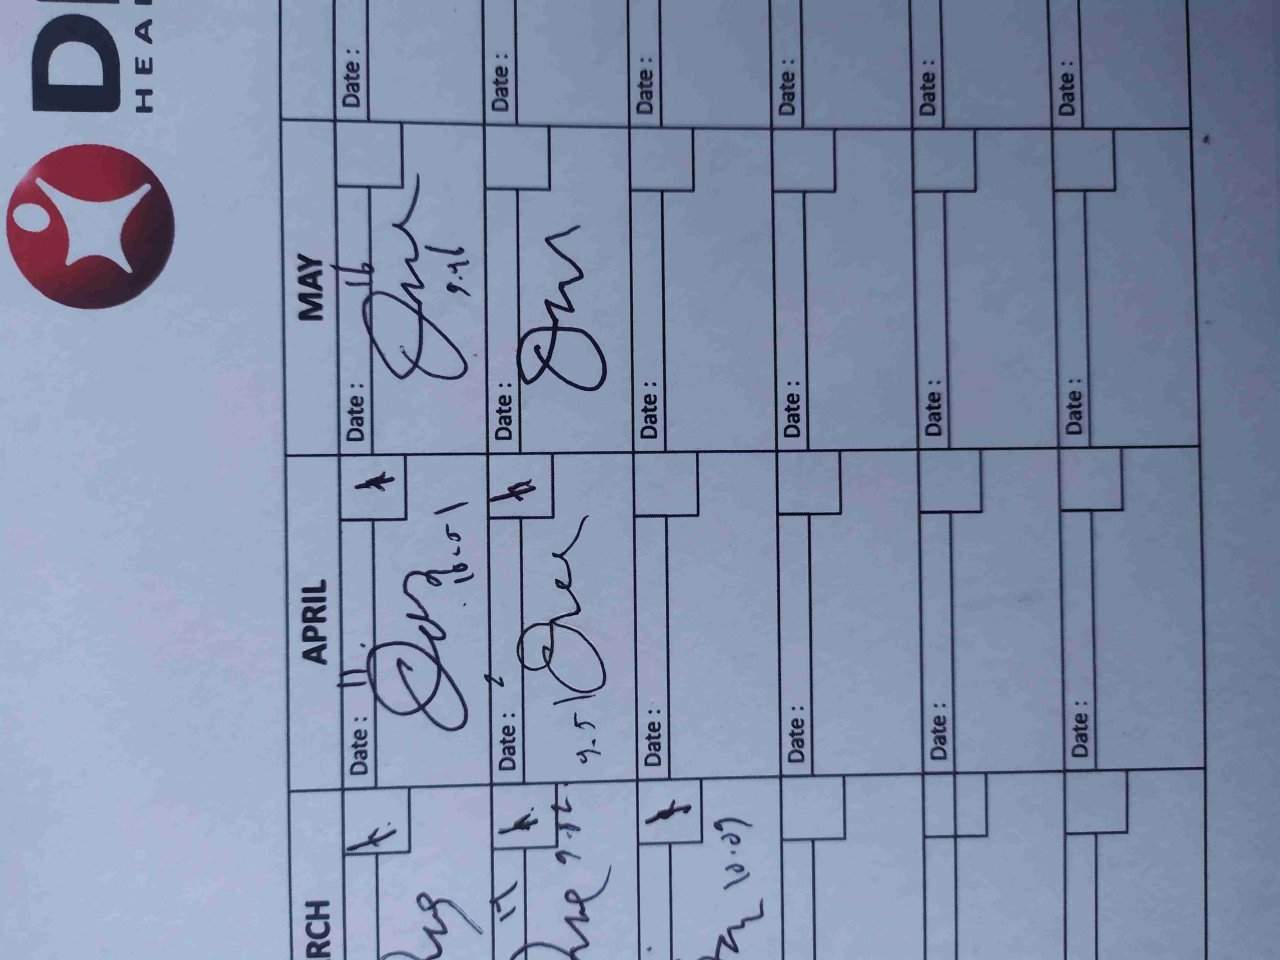 D
HEA
RCH
APRIL
MAY
17
9.52
10.09
Date : 11
10.51
Date : 2
9.51
Date :
Date :
Date :
Date :
Date : 16
9.46
Date :
Date :
Date :
Date :
Date :
Date :
Date :
Date :
Date :
Date :
Date :